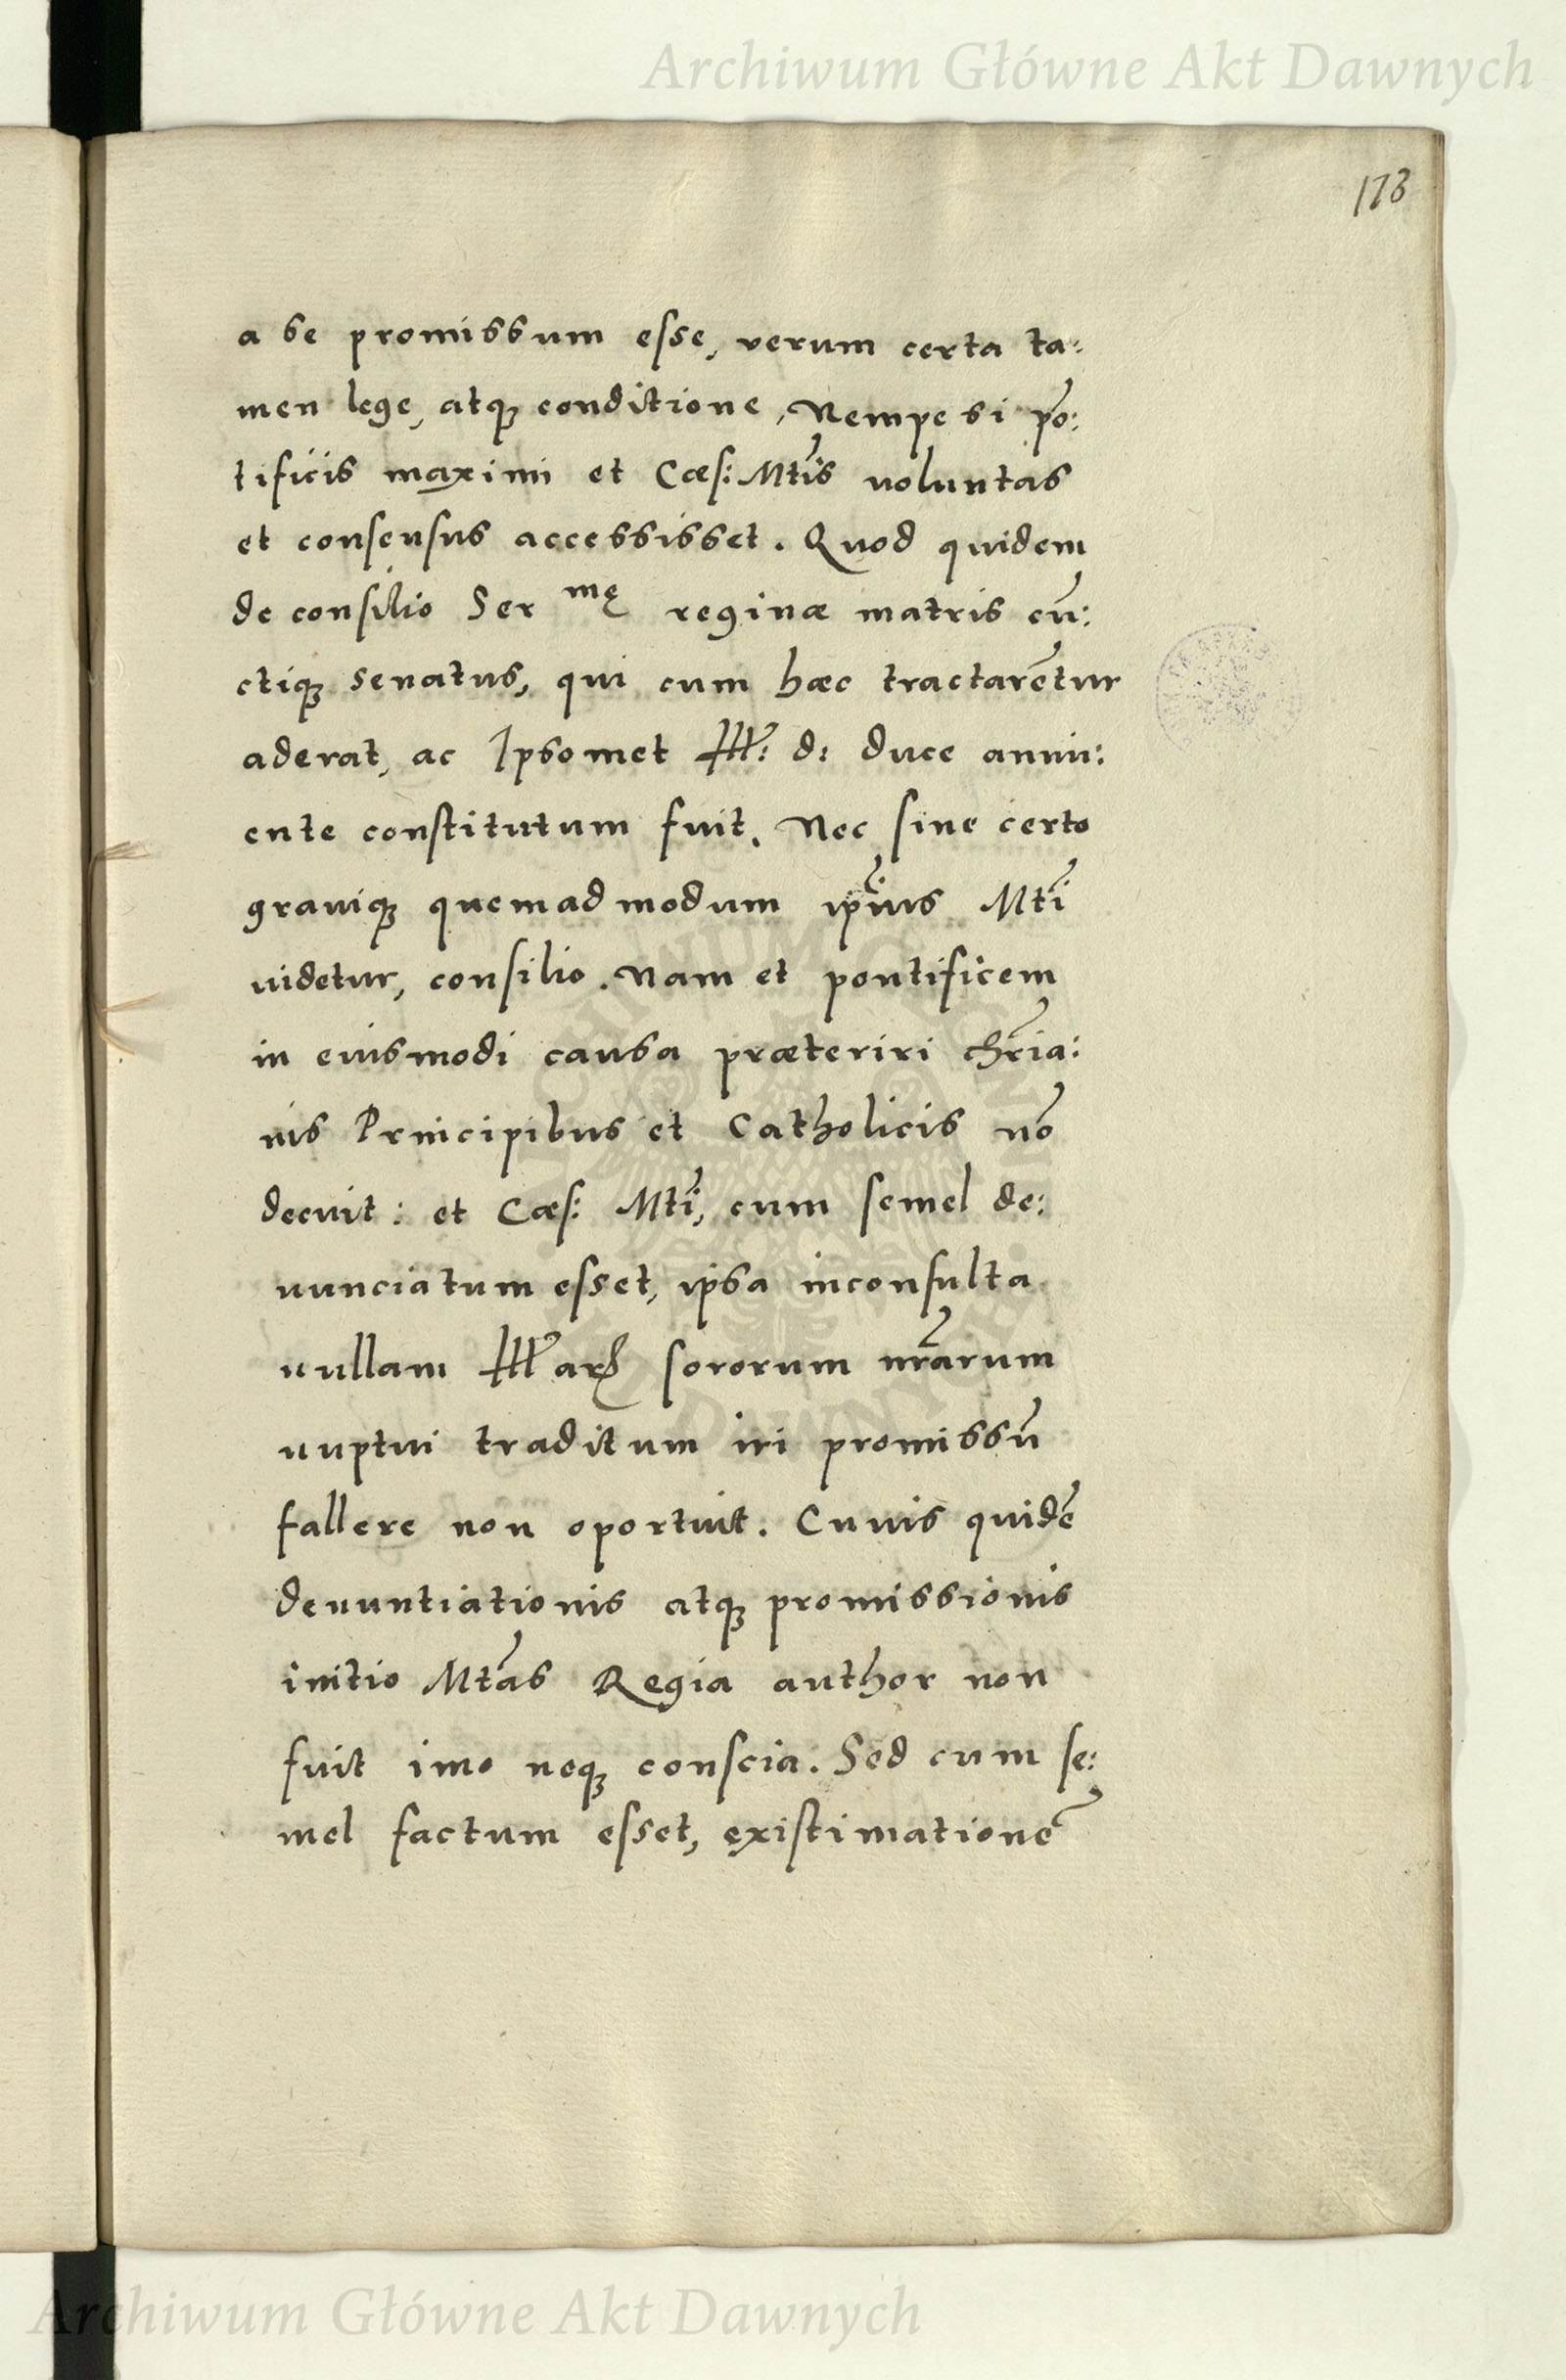 Archiwum Główne Akt Dawnych
173
a se promissum esse, verum certa ta:
men lege, atq₃ conditione, Nempe si põ:
tificis maximi et Cæs: Mtĩs uoluntas
et consensus accessisset. Quod quidem
de consilio Ser mę reginæ matris cũ:
ctiq₃ senatus, qui cum hæc tractarẽtur
aderat, ac Ipsomet Ill: d: duce annu:
ente constitutum fuit. Nec sine certo
grauiq₃ quemadmodum ip̃ius Mtĩ
uidetur, consilio. Nam et pontificem
in eiusmodi causa præteriri chr̃ia:
nis Principibus et Catholicis nõ
decuit: et Cæs: Mtĩ, cum semel de:
nunciatum esset, ipsa inconsulta
nullam Illarꝝ sororum nr̃arum
nuptui traditum iri promissũ
fallere non oportuit. Cuuis quidẽ
denuntiationis atq₃ promissionis
initio Mtãs Regia author non
fuit imo neq₃ conscia. Sed cum se:
mel factum esset, existimationẽ
Archiwum Główne Akt Dawnych